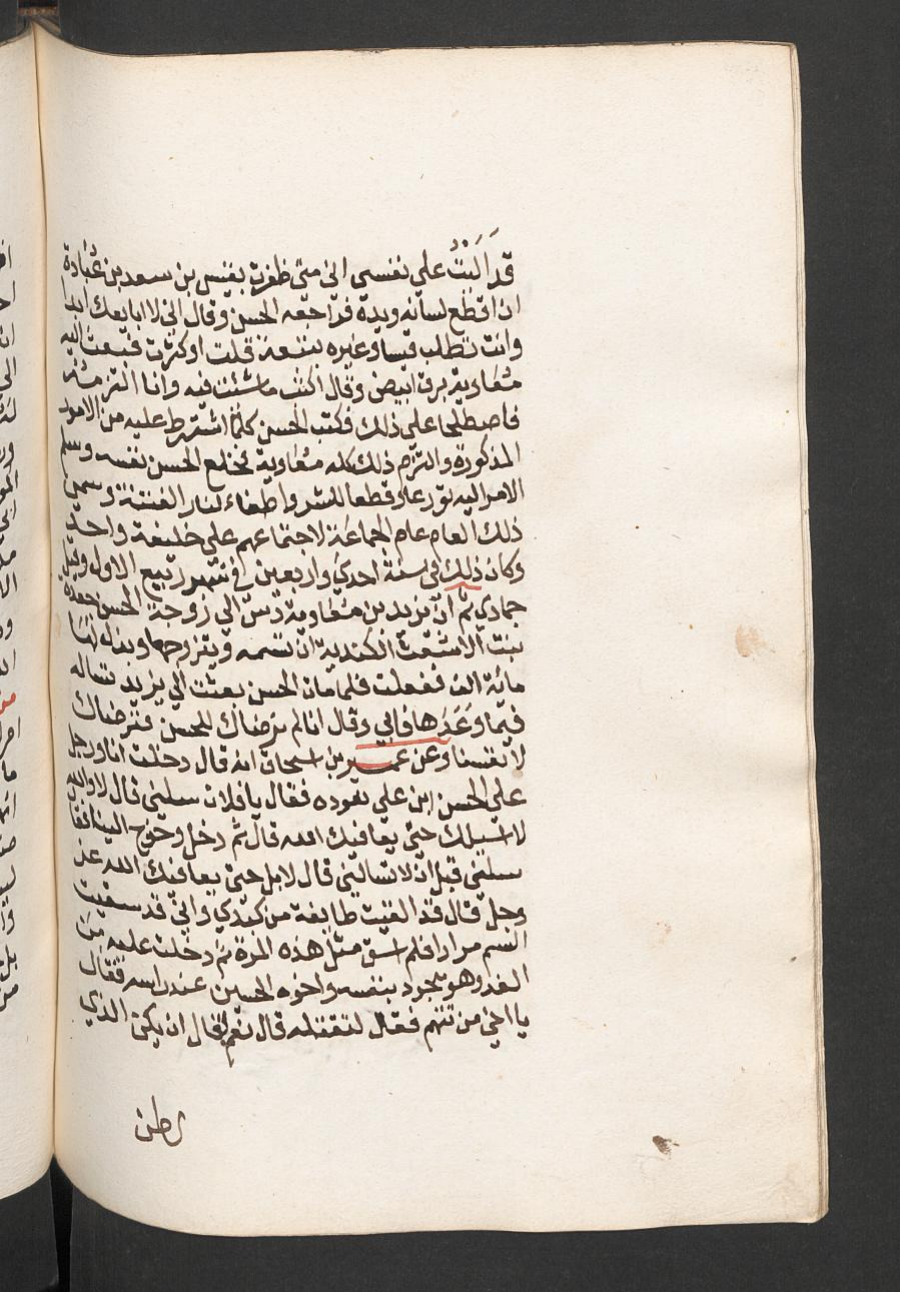 قد اَلَيْتُ علي نفسي اني متى ظفرت بقيس بن سعد بن عُبادة
ان اقطع لسانه ويده فراجعه الحسن وقال اني لا ابايعك ابدا
وانت تطلب قيسا وغيره بتبعة قلت او كثرت فبعث اليه
معاوية برق ابيض وقال اكتب ما شئت فيه وانا التزمته
فاصطلحا على ذلك فكتب الحسن كلما اشترط عليه من الامور
المذكورة والتزم ذلك كله معاوية فخلع الحسن نفسه وسلم
الامر اليه تورعا وقطعا للشر واطفاء لنار الفتنة وسمي
ذلك العام عام الجماعة لاجتماعهم على خليفة واحد
وكان ذلك في سنة احدي واربعين في شهر ربيع الاول وقيل
جمادي ثم ان يزيد بن معاوية دسّ الي زوجة الحسن جعدة
بنت الاشعث الكندية ان تسمه ويتزوجها وبذل لها
مائة الف ففعلت فلما مات الحسن بعثت الي يزيد تساله
فيما وَعَدَها فابي وقال انا لم نرضاك للحسن فنرضاك
لانفسنا وعن عمير بن اسحاق انه قال دخلت انا ورجل
علي الحسن ابن علي نعوده فقال يا فلان سلني قال لا والله
لا اسئلك حتى يعافيك الله قال ثم دخل وخرج الينا فقال
سلني قبل ان لا تسالني قال لا بل حتى يعافيك الله عز
وجل قال قد القيت طايفة من كبدي واني قد سقيت
السم مرارا فلم اسق مثل هذه المرة ثم دخلت عليه من
الغد وهو يجود بنفسه واخوه الحسين عند راسه فقال
يا اخي من تتهم فقال لتقتله قال نعم قال ان يكن الذي